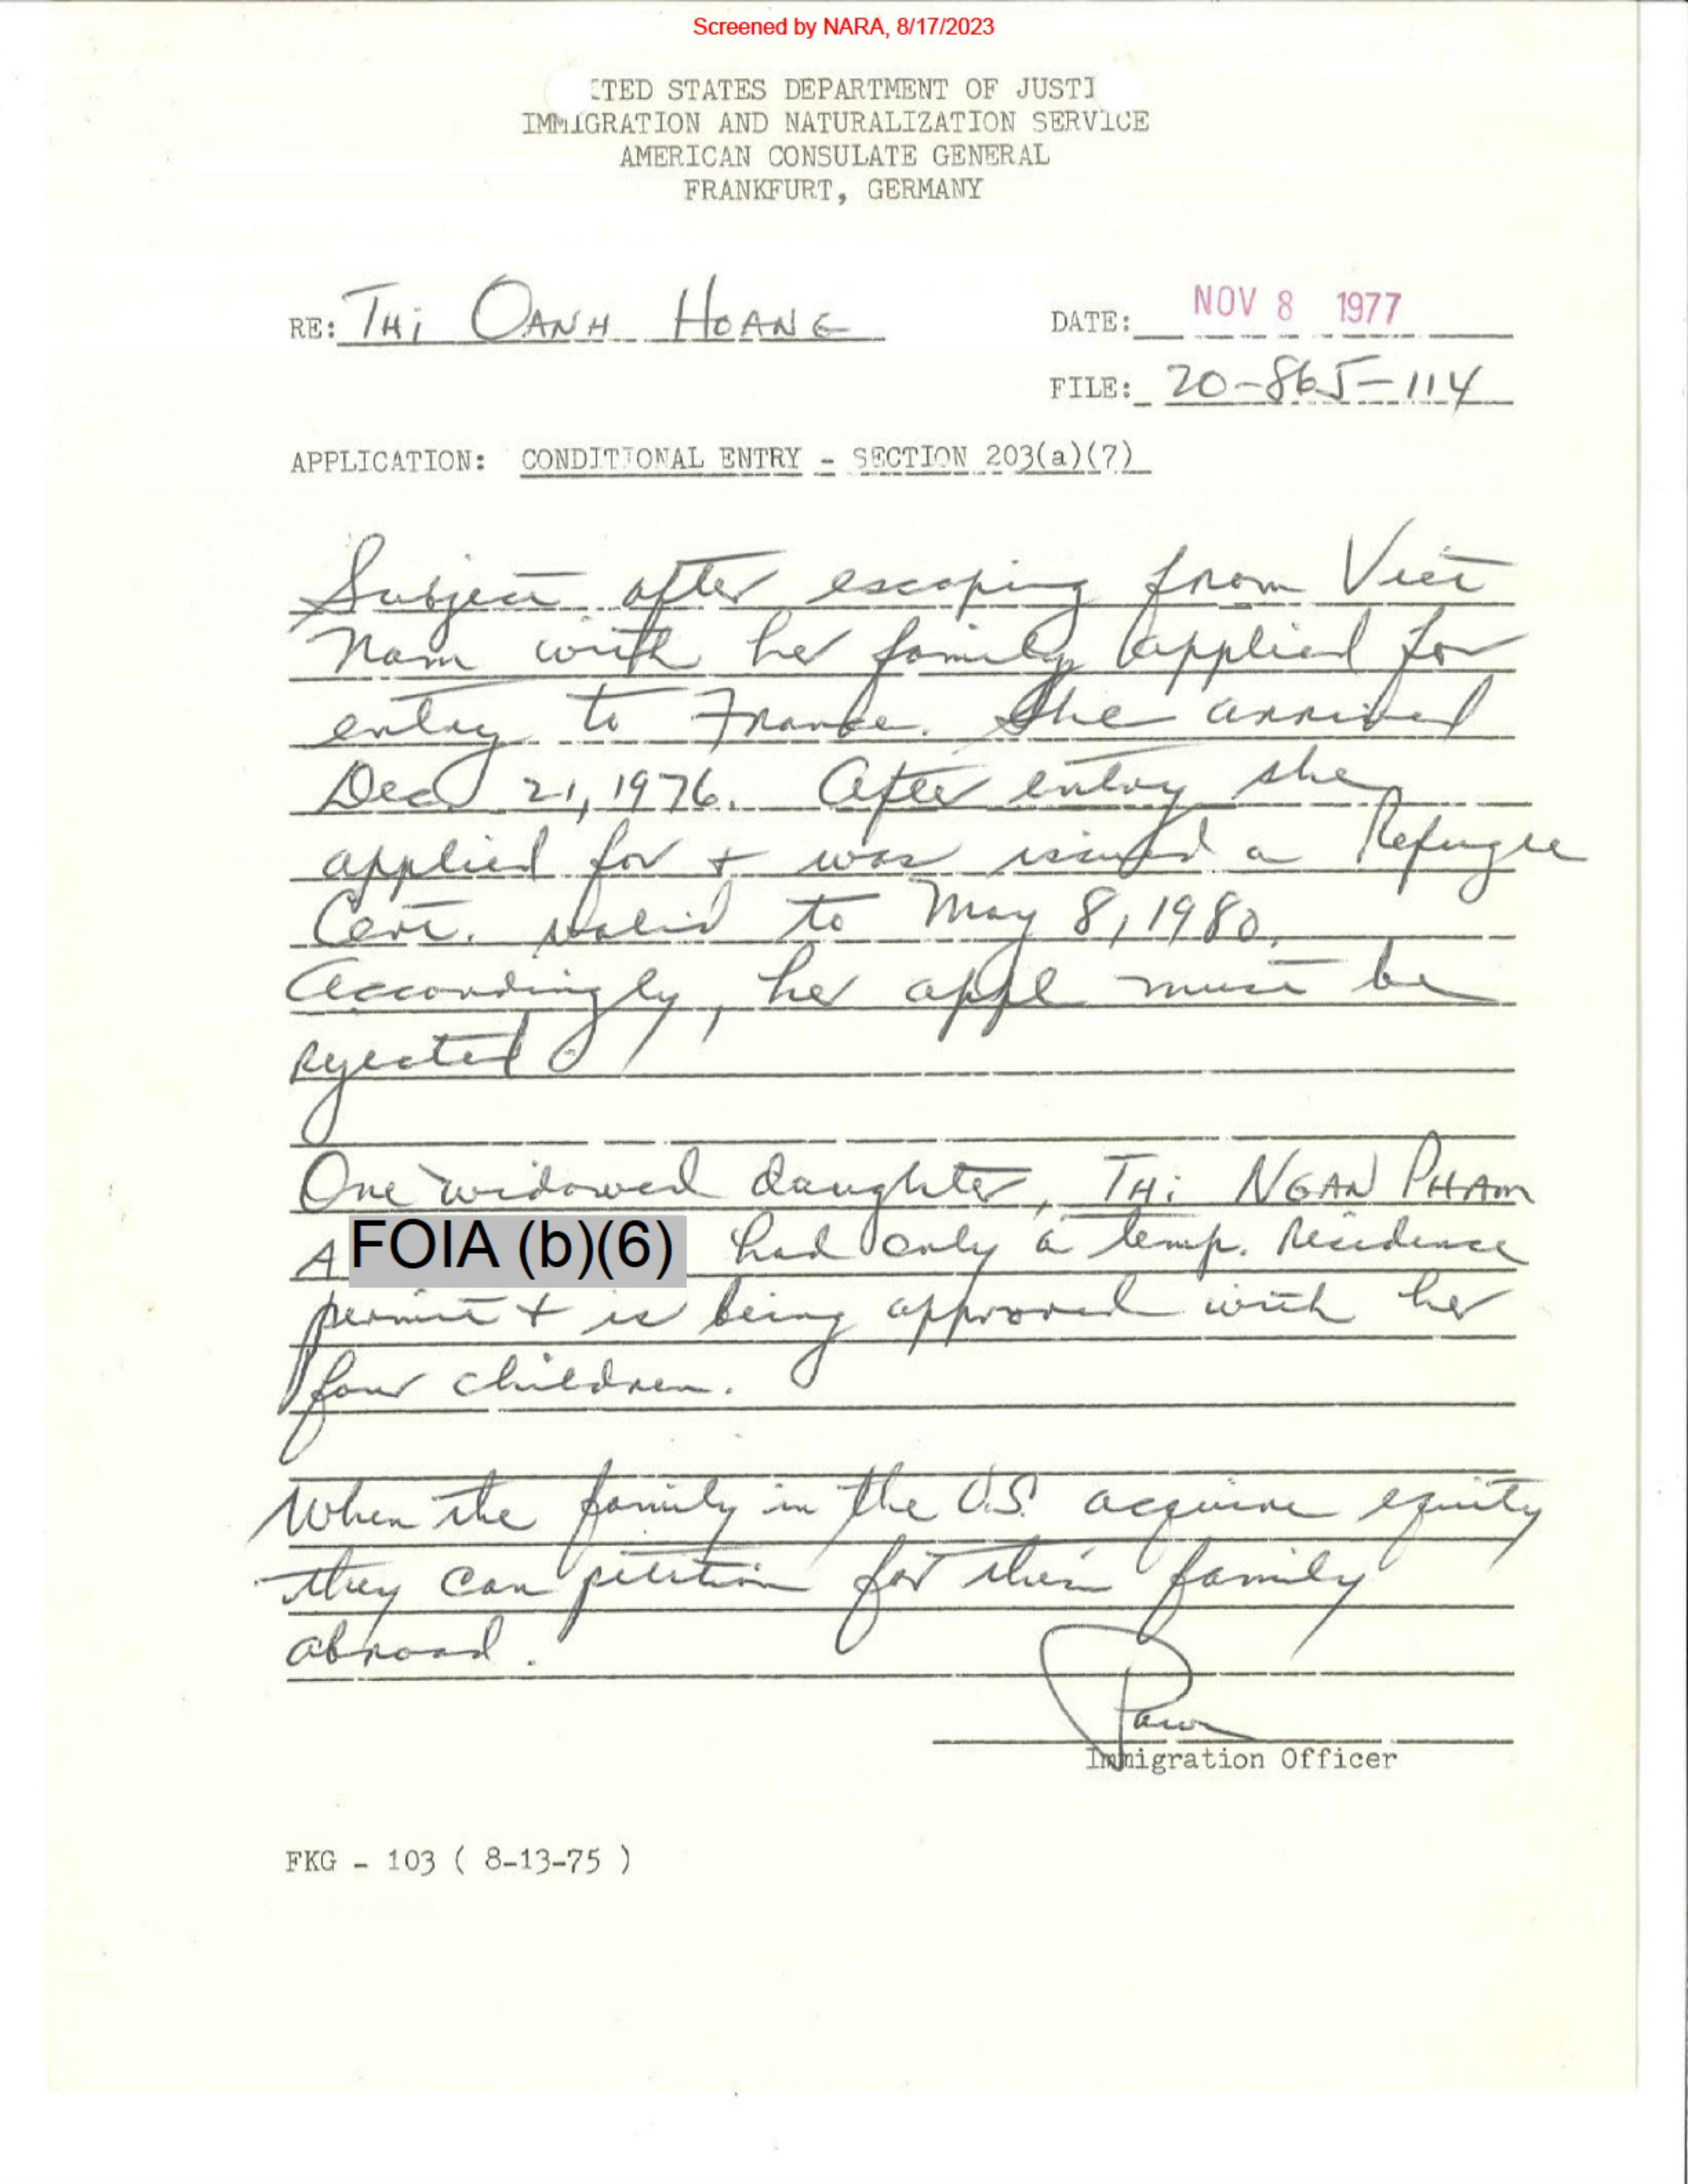 Screened by NARA, 8/17/2023
ITED STATES DEPARTMENT OF JUSTI
IMMIGRATION AND NATURALIZATION SERVICE
AMERICAN CONSULATE GENERAL
FRANKFURT, GERMANY
RE: THi OANH HOANG
DATE: NOV 8 1977
FILE: 20-865-114
APPLICATION: CONDITIONAL ENTRY - SECTION 203(a)(7)
Subject after escaping from Viet
Nam with her family applied for
entry to France. She arrived
Dec 21, 1976. After entry she
applied for + was issued a Refugee
Cert. valid to May 8, 1980.
Accordingly, her appl must be
rejected.
One widowed daughter, THi NGAN PHAM
A FOIA (b)(6) had only a temp. residence
permit + is being approved with her
four children.
When the family in the U.S. acquire equity
they can petition for their family
abroad.
Immigration Officer
FKG - 103 ( 8-13-75 )